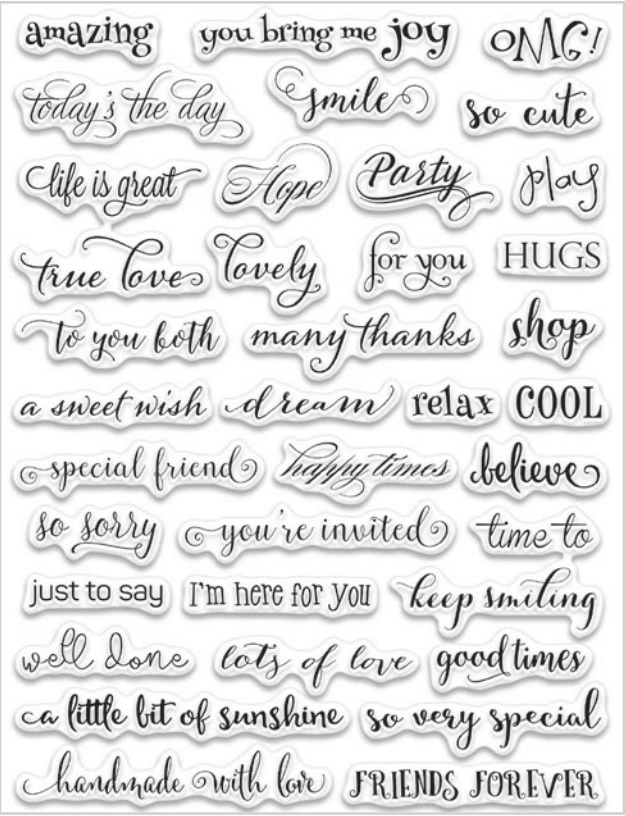 amazing you bring me joy OMG!
today's the day smile so cute
life is great Hope Party play
true love lovely for you HUGS
to you both many thanks shop
a sweet wish dream relax COOL
special friend happy times believe
so sorry you're invited time to
just to say I'm here for you keep smiling
well done lots of love good times
a little bit of sunshine so very special
handmade with love FRIENDS FOREVER